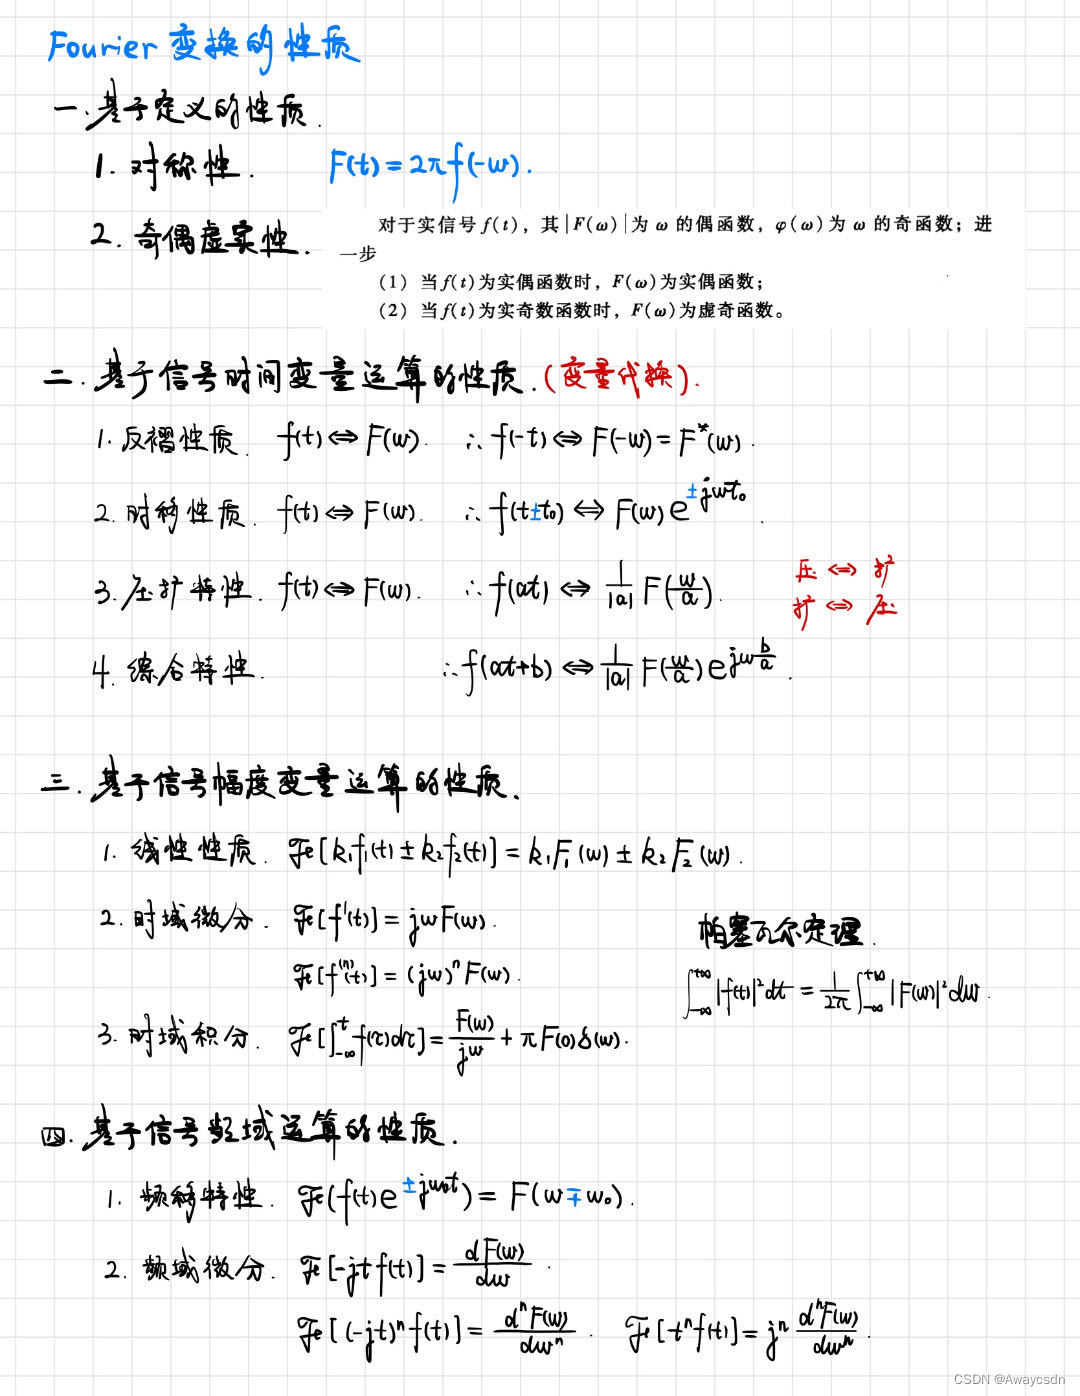 Fourier 变换的性质
一. 基于定义的性质.
1. 对称性. F(t) = 2πf(-w).
2. 奇偶虚实性.
对于实信号 f(t), 其|F(ω)|为 ω 的偶函数, φ(ω)为 ω 的奇函数; 进
一步
(1) 当 f(t)为实偶函数时, F(ω)为实偶函数;
(2) 当 f(t)为实奇数函数时, F(ω)为虚奇函数。
二. 基于信号时间变量运算的性质. (变量代换).
1. 反褶性质. f(t) ⇔ F(w). ∴ f(-t) ⇔ F(-w) = F*(w).
2. 时移性质. f(t) ⇔ F(w). ∴ f(t±t₀) ⇔ F(w) e^{±jwt₀}.
3. 压扩特性. f(t) ⇔ F(w). ∴ f(at) ⇔ 1/|a| F(w/a). 压 ⇔ 扩
扩 ⇔ 压
4. 综合特性. ∴ f(at+b) ⇔ 1/|a| F(w/a) e^{jw b/a}.
三. 基于信号幅度变量运算的性质.
1. 线性性质. ℱ[k₁f₁(t) ± k₂f₂(t)] = k₁F₁(w) ± k₂F₂(w).
2. 时域微分. ℱ[f'(t)] = jwF(w).
帕塞瓦尔定理.
ℱ[f^{(n)}(t)] = (jw)ⁿ F(w).
∫_{-∞}^{+∞} |f(t)|² dt = 1/2π ∫_{-∞}^{+∞} |F(w)|² dw.
3. 时域积分. ℱ[∫_{-∞}^{t} f(τ)dτ] = F(w)/jw + πF(0)δ(w).
四. 基于信号频域运算的性质.
1. 频移特性. ℱ(f(t)e^{±jw₀t}) = F(w∓w₀).
2. 频域微分. ℱ[-jt f(t)] = dF(w)/dw.
ℱ[(-jt)ⁿ f(t)] = dⁿF(w)/dwⁿ. ℱ[tⁿ f(t)] = jⁿ dⁿF(w)/dwⁿ.
CSDN @Awaycsdn